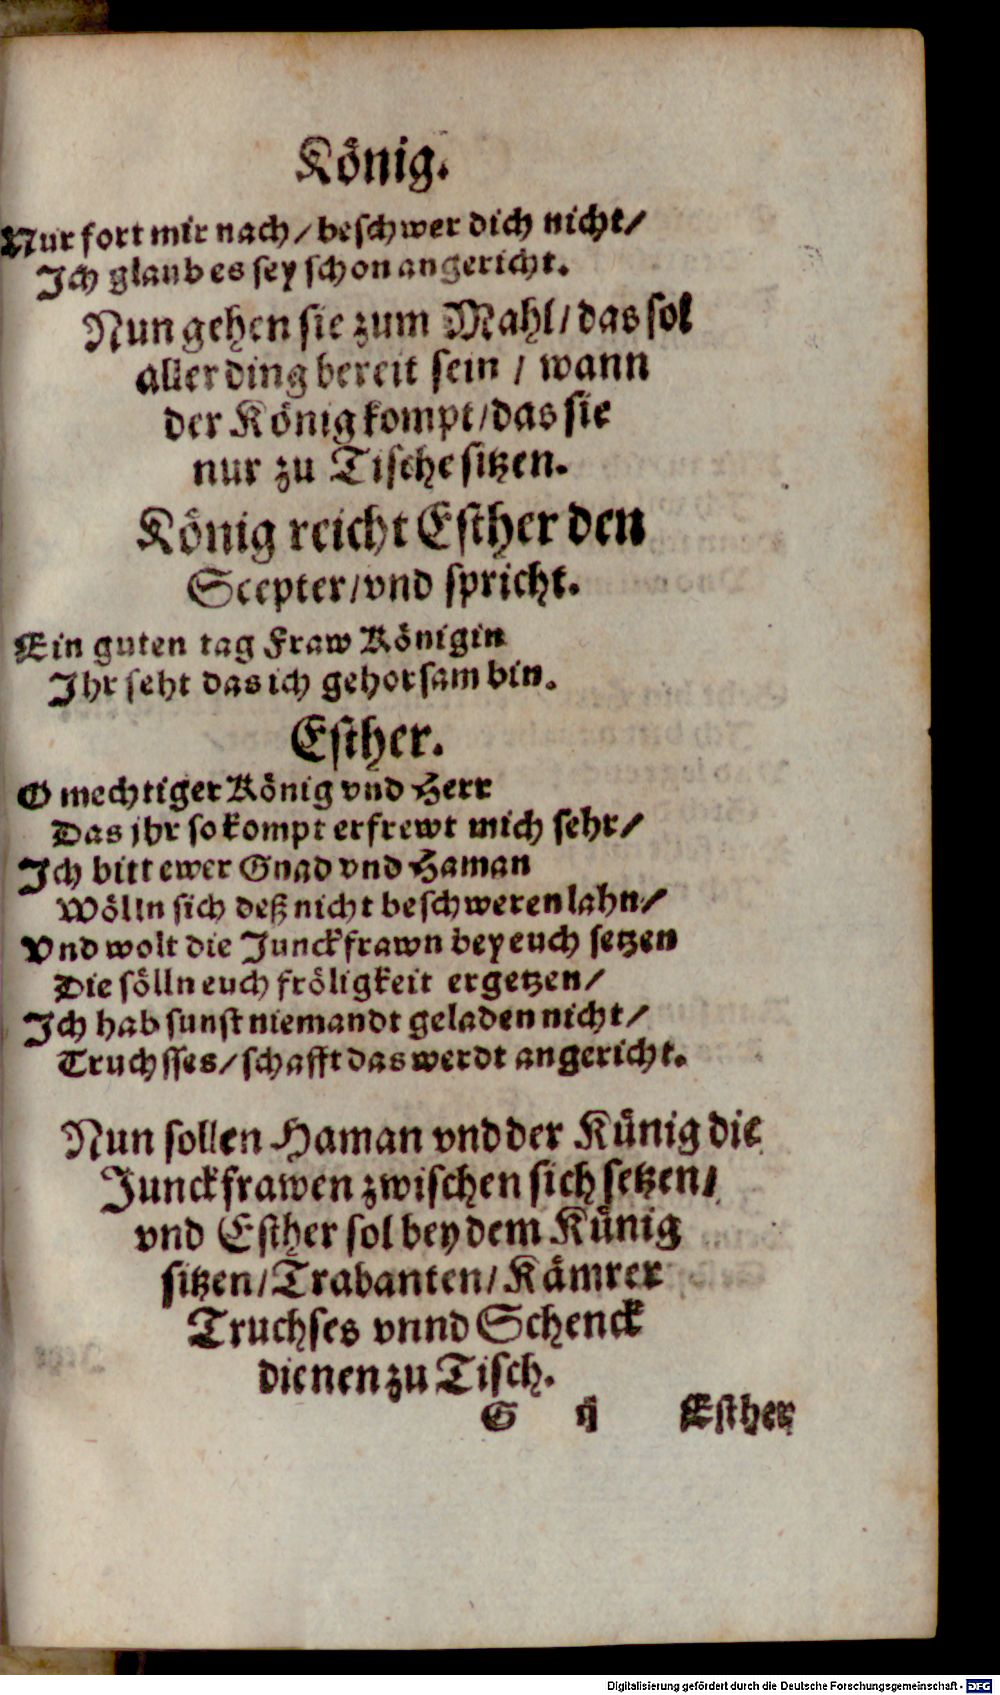 König.
Nur fort mir nach / beschwer dich nicht /
Ich glaub es sey schon angericht.
Nun gehen sie zum Mahl / das sol
aller ding bereit sein / wann
der König kompt / das sie
nur zu Tische sitzen.
König reicht Esther den
Scepter / vnd spricht.
Ein guten tag Fraw Königin
Ihr seht das ich gehorsam bin.
Esther.
O mechtiger König vnd Herr
Das jhr so kompt erfrewt mich sehr /
Ich bitt ewer Gnad vnd Haman
Wölln sich deß nicht beschweren lahn /
Vnd wolt die Junckfrawn bey euch setzen
Die sölln euch fröligkeit ergetzen /
Ich hab sunst niemandt geladen nicht /
Truchsses / schafft das werdt angericht.
Nun sollen Haman vnd der Künig die
Junckfrawen zwischen sich setzen /
vnd Esther sol bey dem Künig
sitzen / Trabanten / Kämrer
Truchses vnnd Schenck
dienen zu Tisch.
G ij Esther
Digitalisierung gefördert durch die Deutsche Forschungsgemeinschaft - DFG